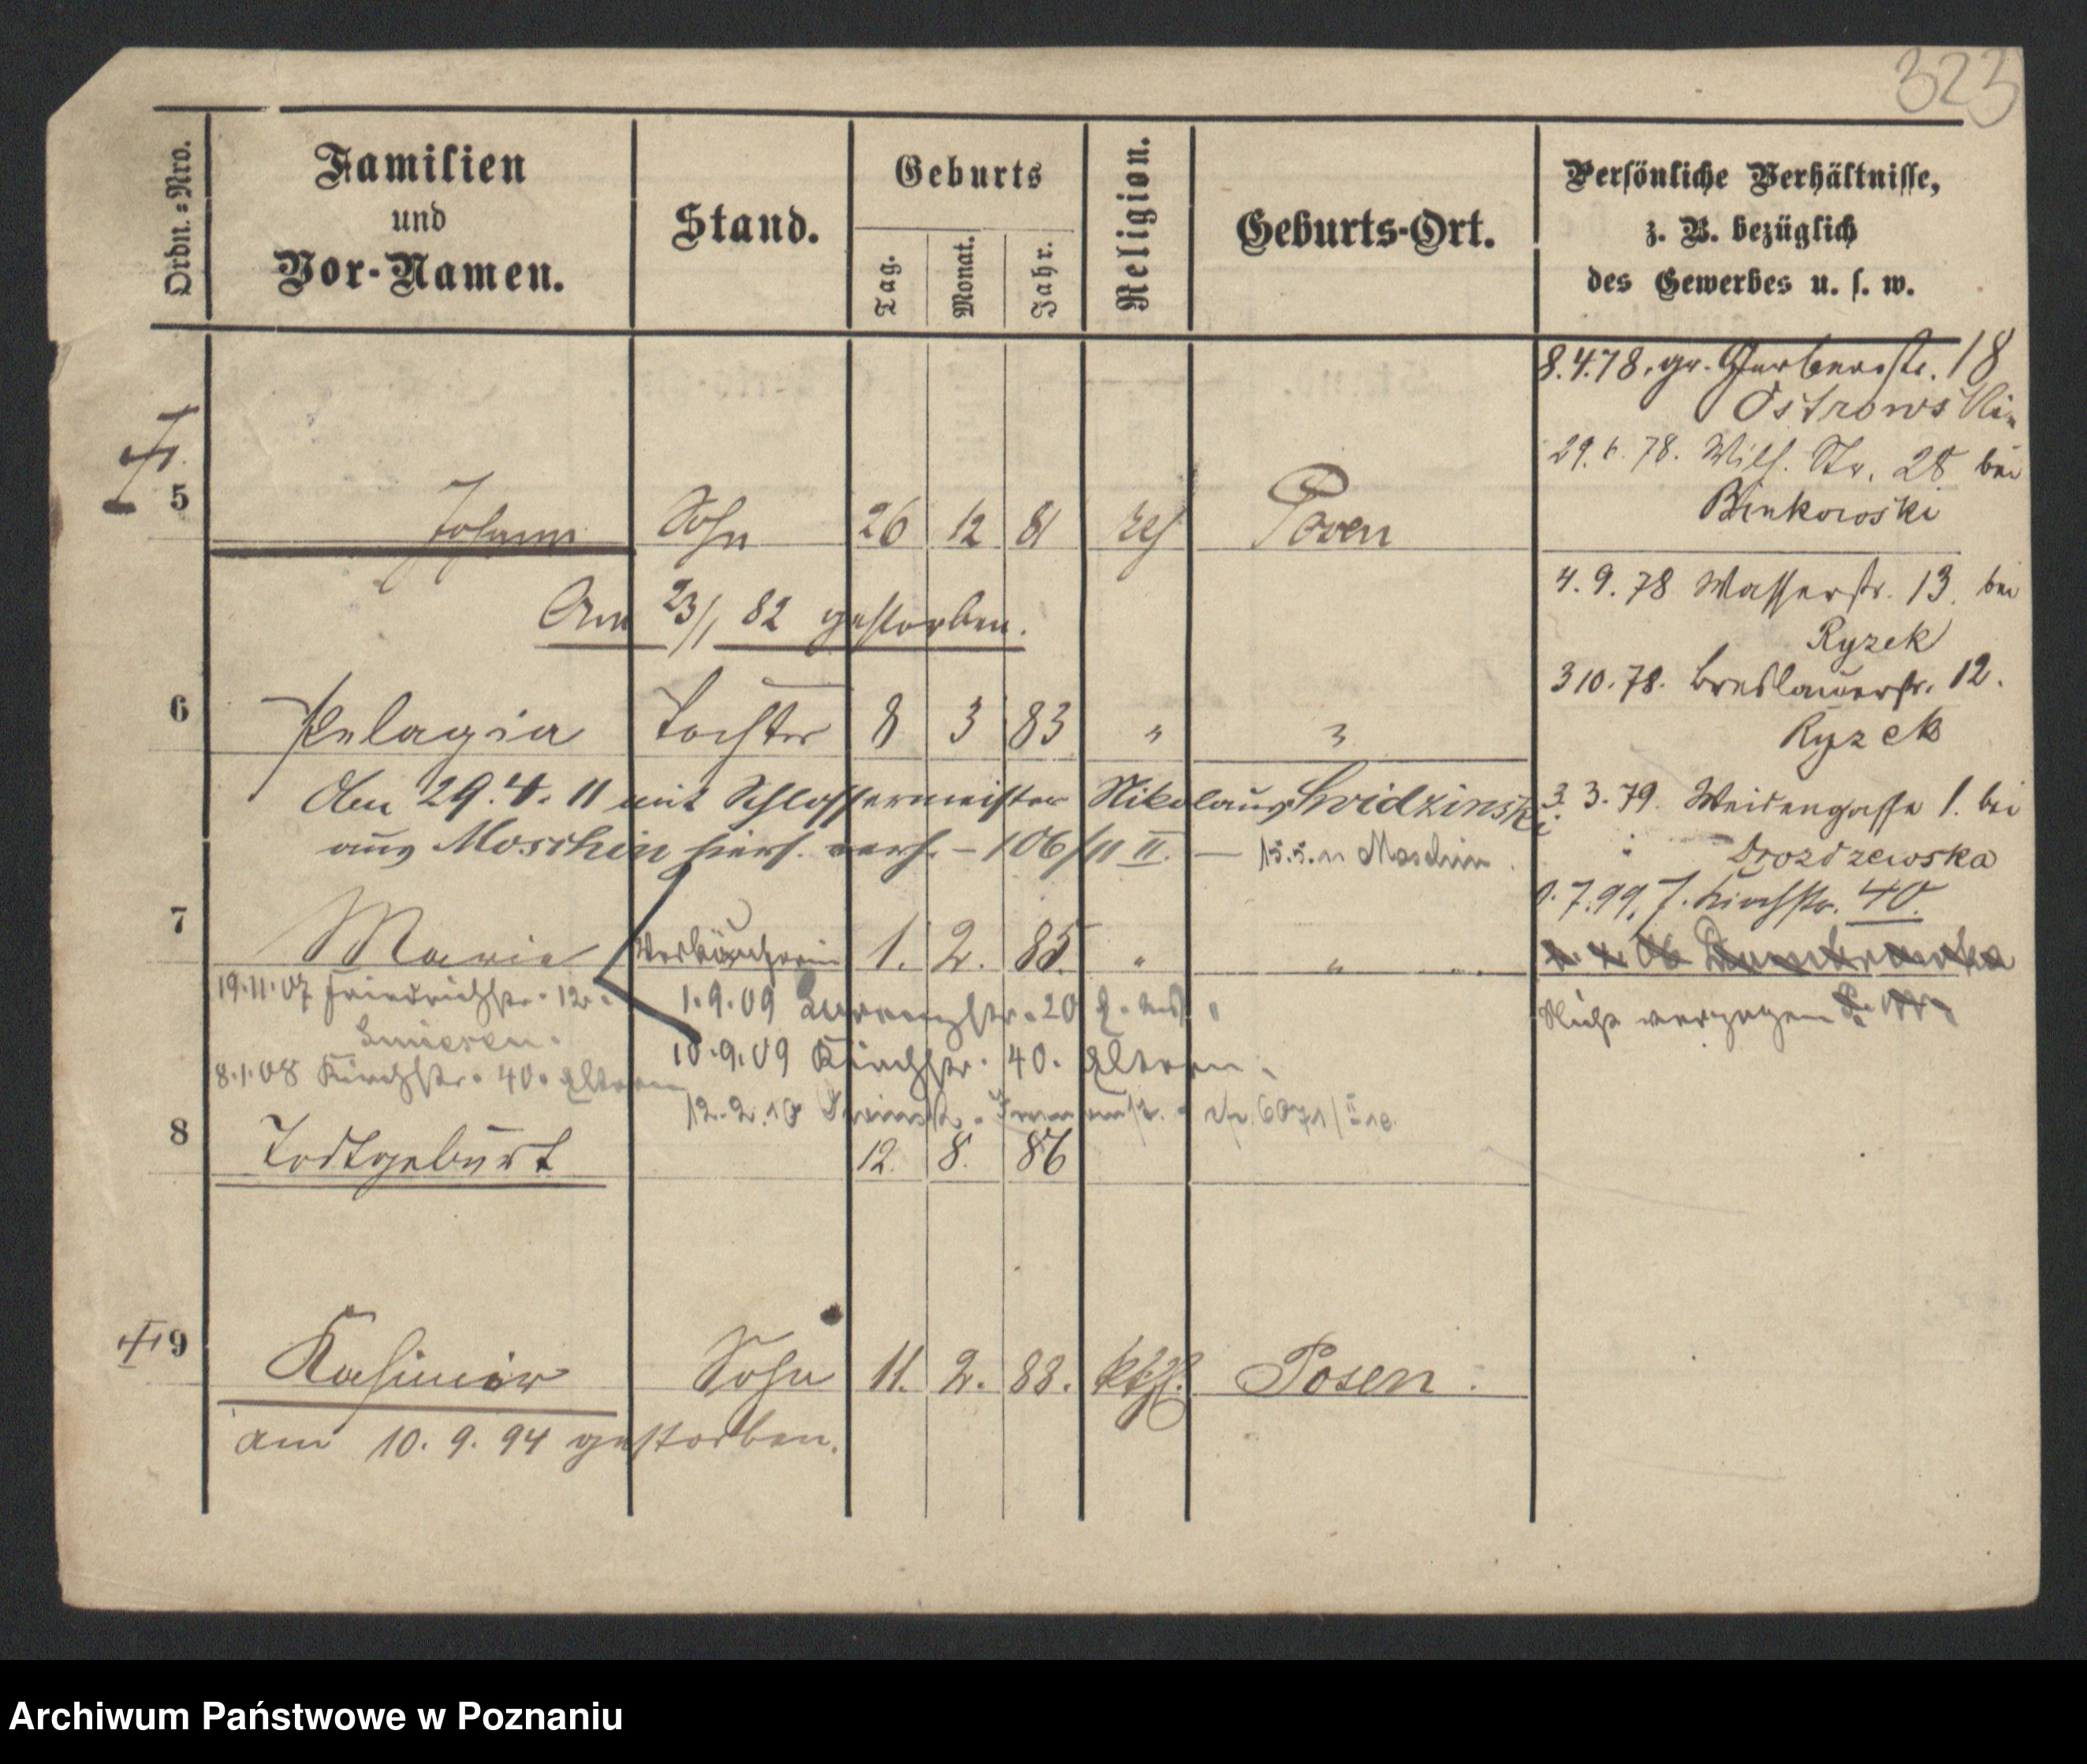 323
Ordn.=Nro.
Familien
und
Vor-Namen.
Stand.
Geburts
Tag.
Monat.
Jahr.
Religion.
Geburts-Ort.
Persönliche Verhältnisse,
z. B. bezüglich
des Gewerbes u. s. w.
8.4.78. gr. Gerberstr. 18
Ostrowski
29.6.78. Wilh. Str. 28 bei
Binkowski
5 Johann Sohn 26 12 81 Posen
Am 23/1 82 gestorben.
4.9.78 Wasserstr. 13. bei
Ryzek
3 10.78. Breslauerstr. 12.
Ryzek
6 Pelagia Tochter 8 3 83 " "
Am 29.4.11 mit Schlossermeister Nikolaus Swidzinski
aus Moschin hiers. verh. – 106/11 II. — 15.5.11 Moschin
3.3.79. Weidengasse 1. bei
Drozdzewska
1.7.99. Kirchstr. 40.
7 Marie Verkäuferin 1. 2. 85. " "
Nicht verzogen
19.11.07 Friedrichstr. 12
8.1.08 Kirchstr. 40. Eltern
1.9.09 20
10.9.09 Kirchstr. 40. Eltern.
12.2.10
8 Todtgeburt 12. 8. 86
9 Kasimir Sohn 11. 2. 88. kth. Posen.
am 10.9.94 gestorben.
Archiwum Państwowe w Poznaniu